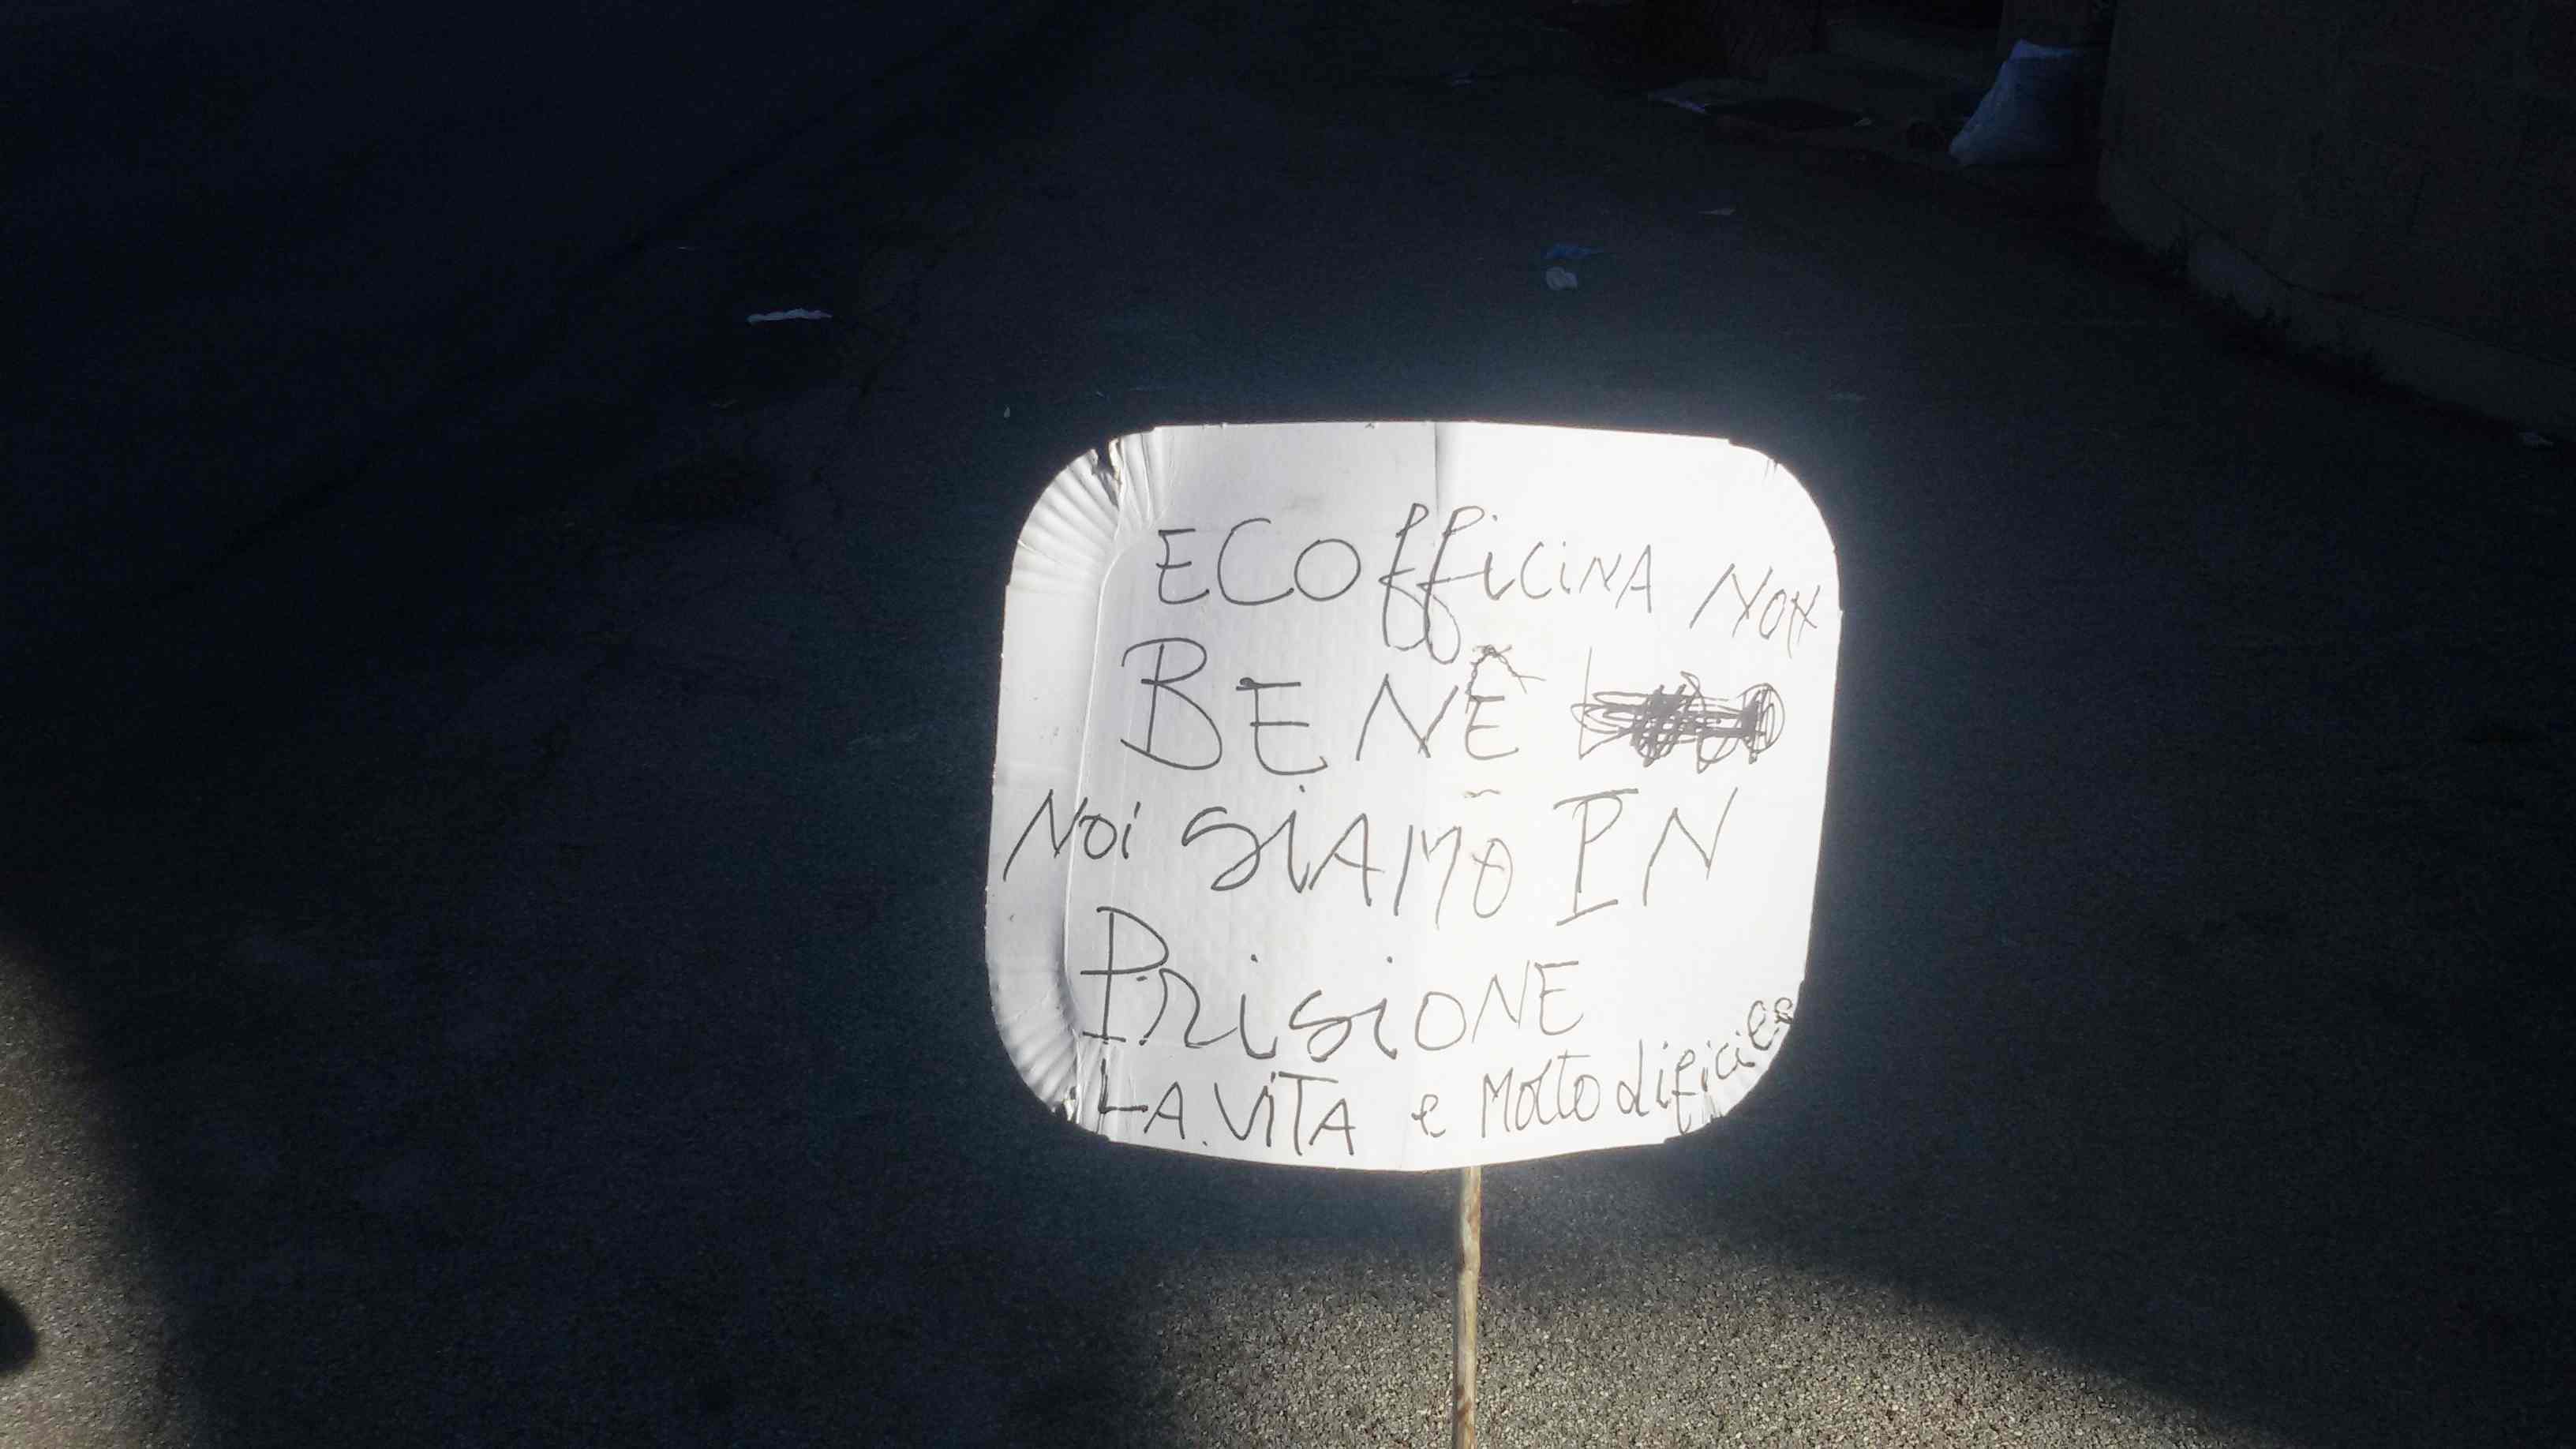 ECOfficiNA NON
BENE
Noi SiAMO IN
PrisioNE
LA.ViTA e Molto dificile